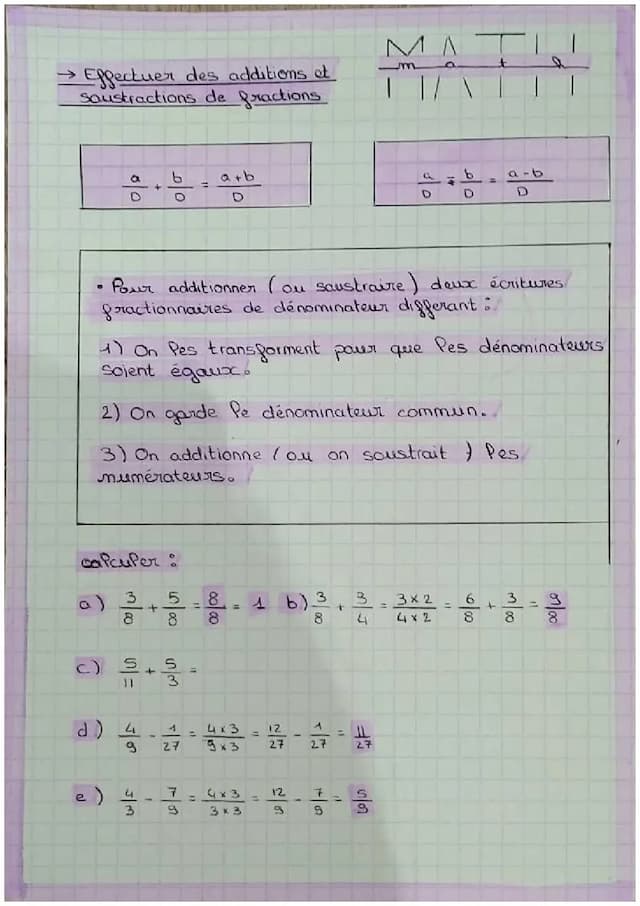 MATH
m a t h
→ Effectuer des additions et
soustractions de fractions
a/D + b/D = a+b/D
a/D - b/D = a-b/D
• Pour additionner (ou soustraire) deux écritures
fractionnaires de dénominateur differant :
1) On les transforment pour que les dénominateurs
soient égaux.
2) On garde le dénominateur commun.
3) On additionne (ou on soustrait) les
numérateurs.
calculer :
a) 3/8 + 5/8 = 8/8 = 1 b) 3/8 + 3/4 = 3×2/4×2 = 6/8 + 3/8 = 9/8
c) 5/11 + 5/3 =
d) 4/9 - 1/27 = 4×3/9×3 = 12/27 - 1/27 = 11/27
e) 4/3 - 7/9 = 4×3/3×3 = 12/9 - 7/9 = 5/9